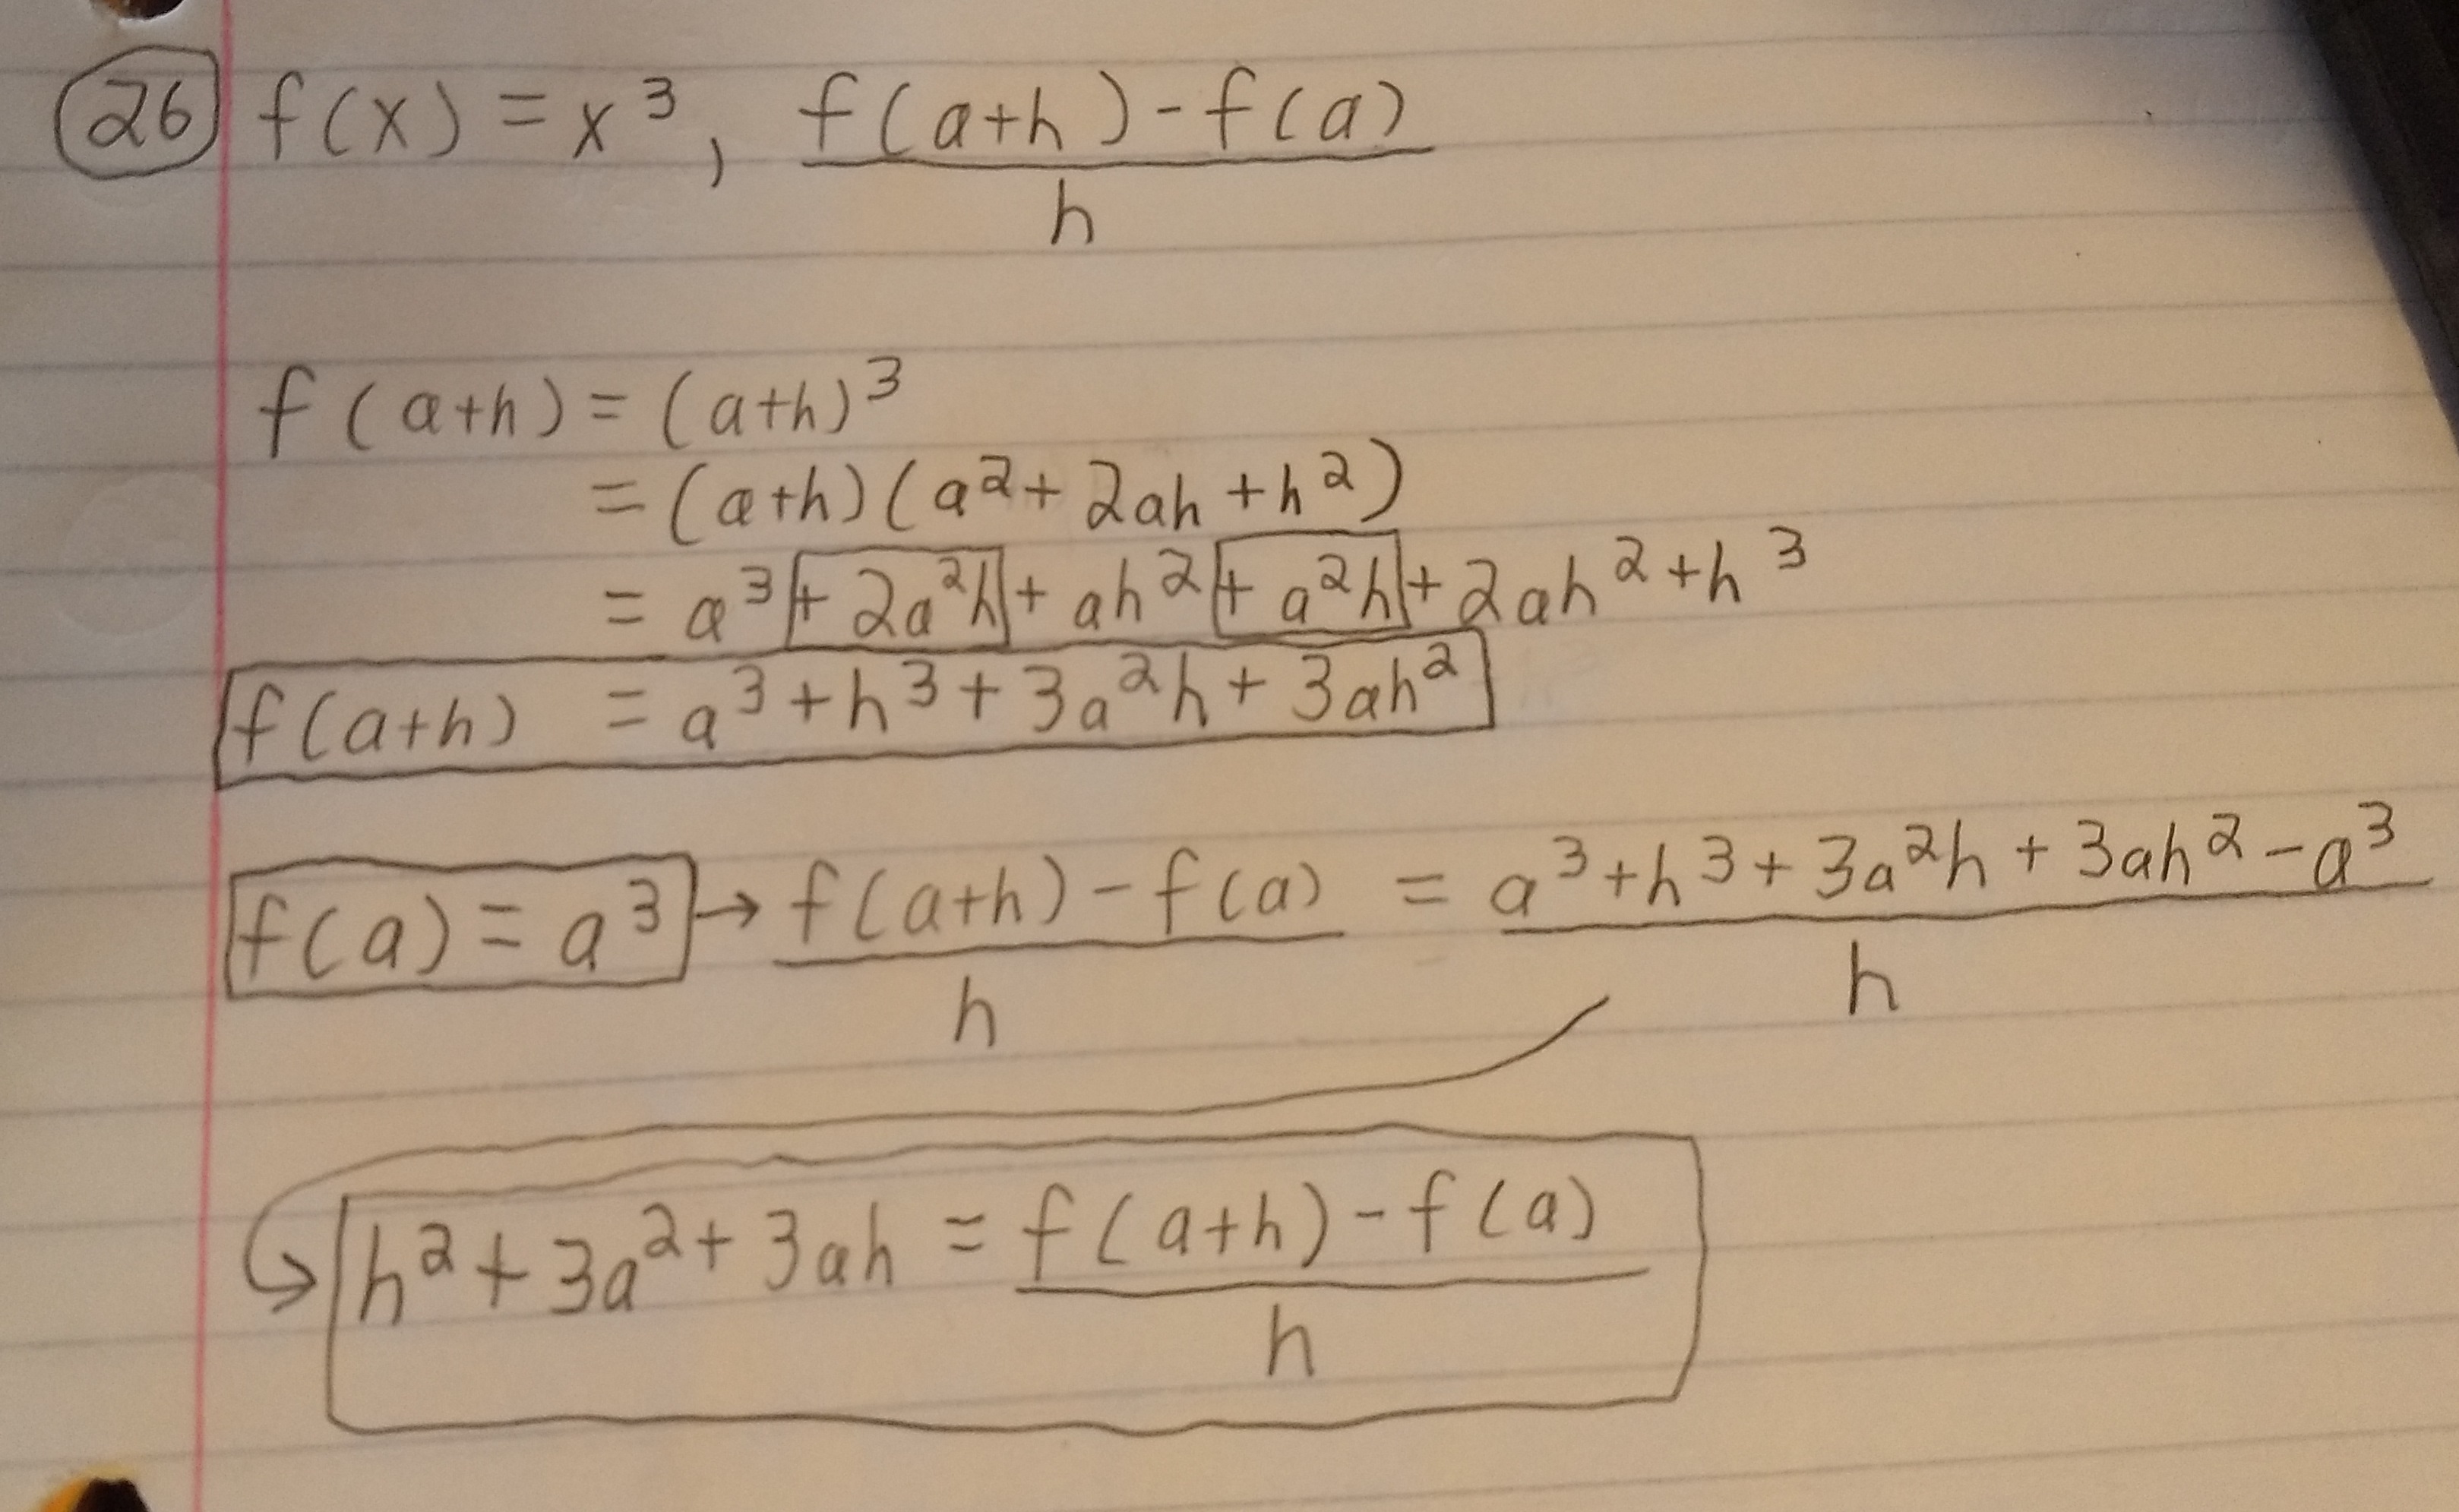 26 f(x) = x³, f(a+h) - f(a)
h
f(a+h) = (a+h)³
= (a+h)(a²+2ah+h²)
= a³+2a²h+ah²+a²h+2ah²+h³
f(a+h) = a³+h³+3a²h+3ah²
f(a) = a³ → f(a+h) - f(a) = a³+h³+3a²h+3ah²-a³
h h
h²+3a²+3ah = f(a+h) - f(a)
h